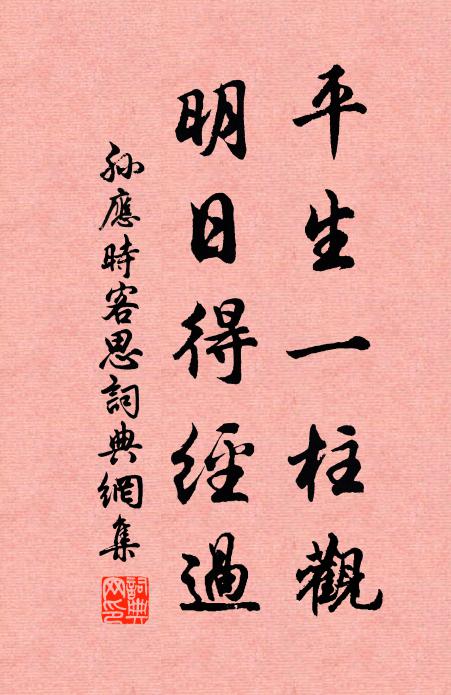 平生一柱觀
明日得經過
孫應時客思詞典網集
詞典網印